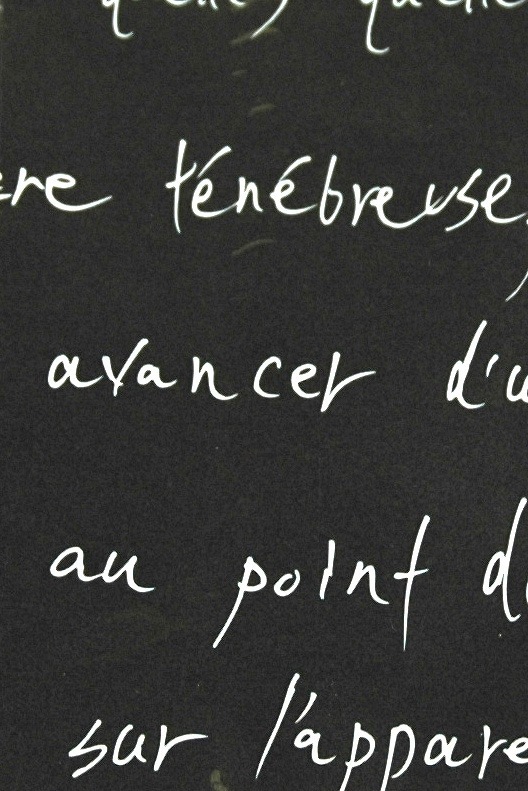 ere ténébreuse,
avancer d'u
au point d
sur l'appare